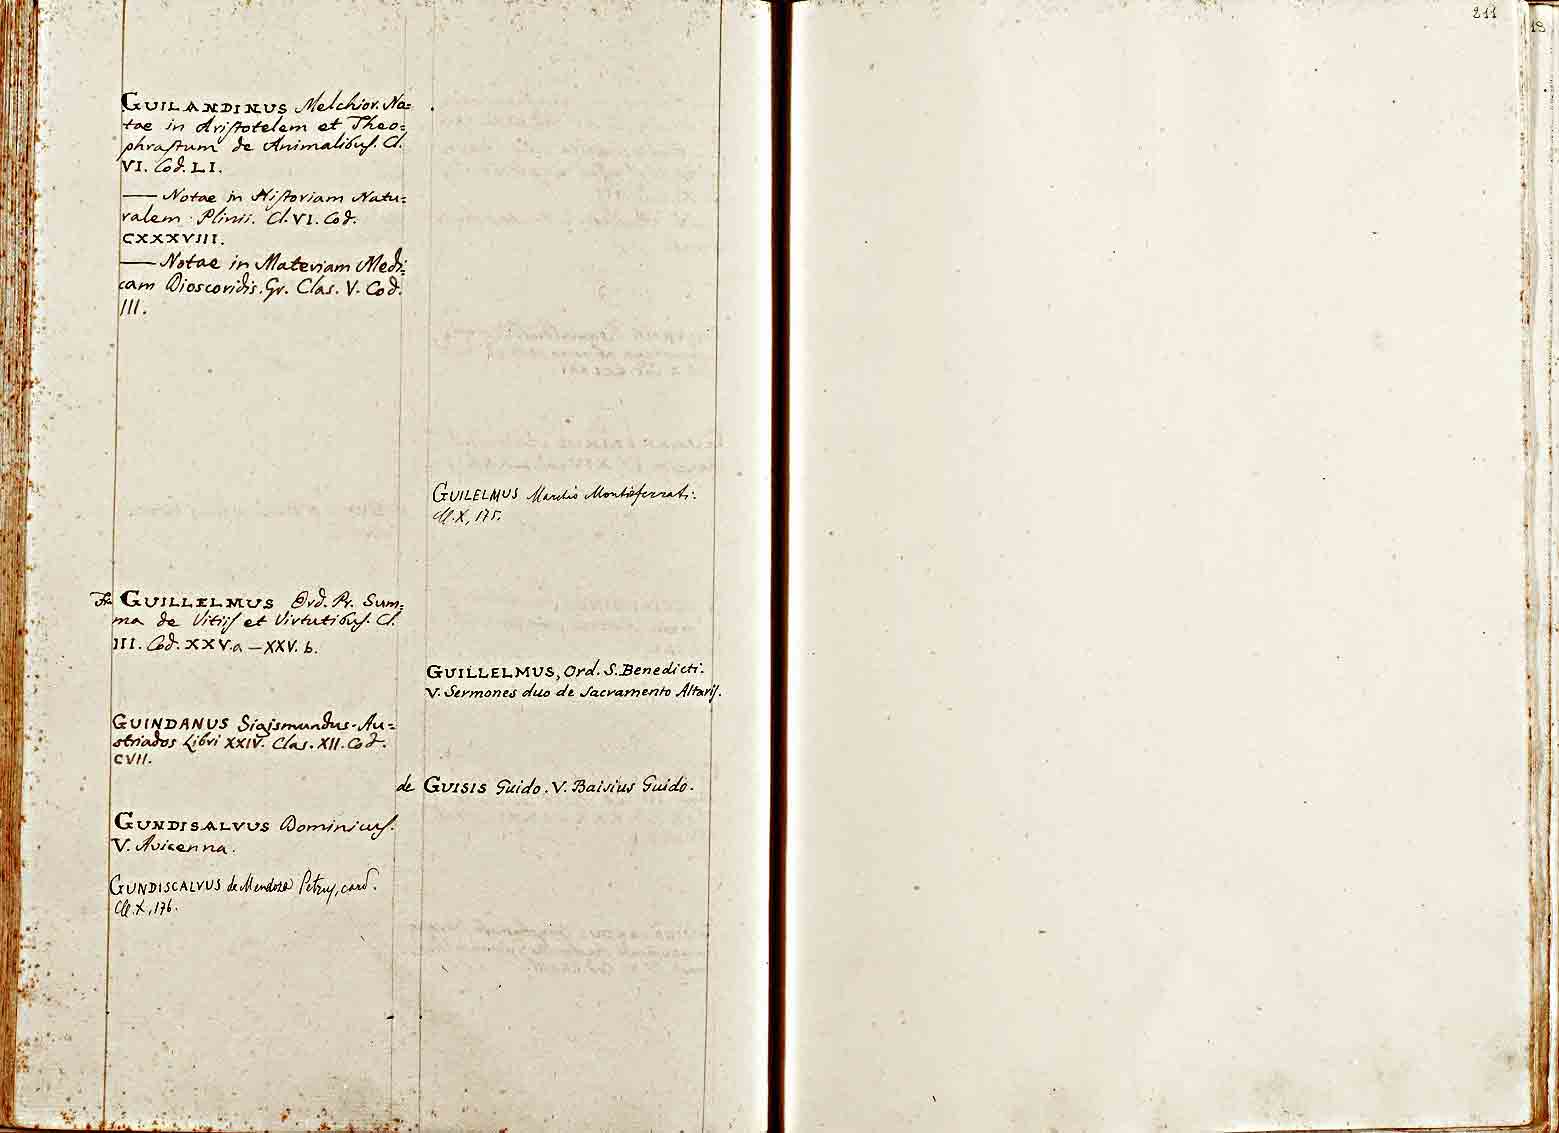 211
18
GUILANDINUS Melchior. No=
tae in Aristotelem et Theo=
phrastum de Animalibus. Cl.
VI. Cod. LI.
— Notae in Historiam Natu=
ralem Plinii. Cl. VI. Cod.
CXXXVIII.
— Notae in Materiam Medi=
cam Dioscoridis. Gr. Clas. V. Cod.
III.
Fr. GUILLELMUS Ord. Pr. Sum=
ma de Vitiis et Virtutibus. Cl.
III. Cod. XXV.a — XXV. b.
GUINDANUS Sigismundus. Au=
striados Libri XXIV. Clas. XII. Cod.
CVII.
GUNDISALVUS Dominicus.
V. Avicenna.
GUNDISCALVUS de Mendoza Petrus, card.
Cl. X, 176.
GUILELMUS Marchio Montisferrati.
Cl. X, 175.
GUILLELMUS, Ord. S. Benedicti.
V. Sermones duo de Sacramento Altaris.
de GUISIS Guido. V. Baisius Guido.